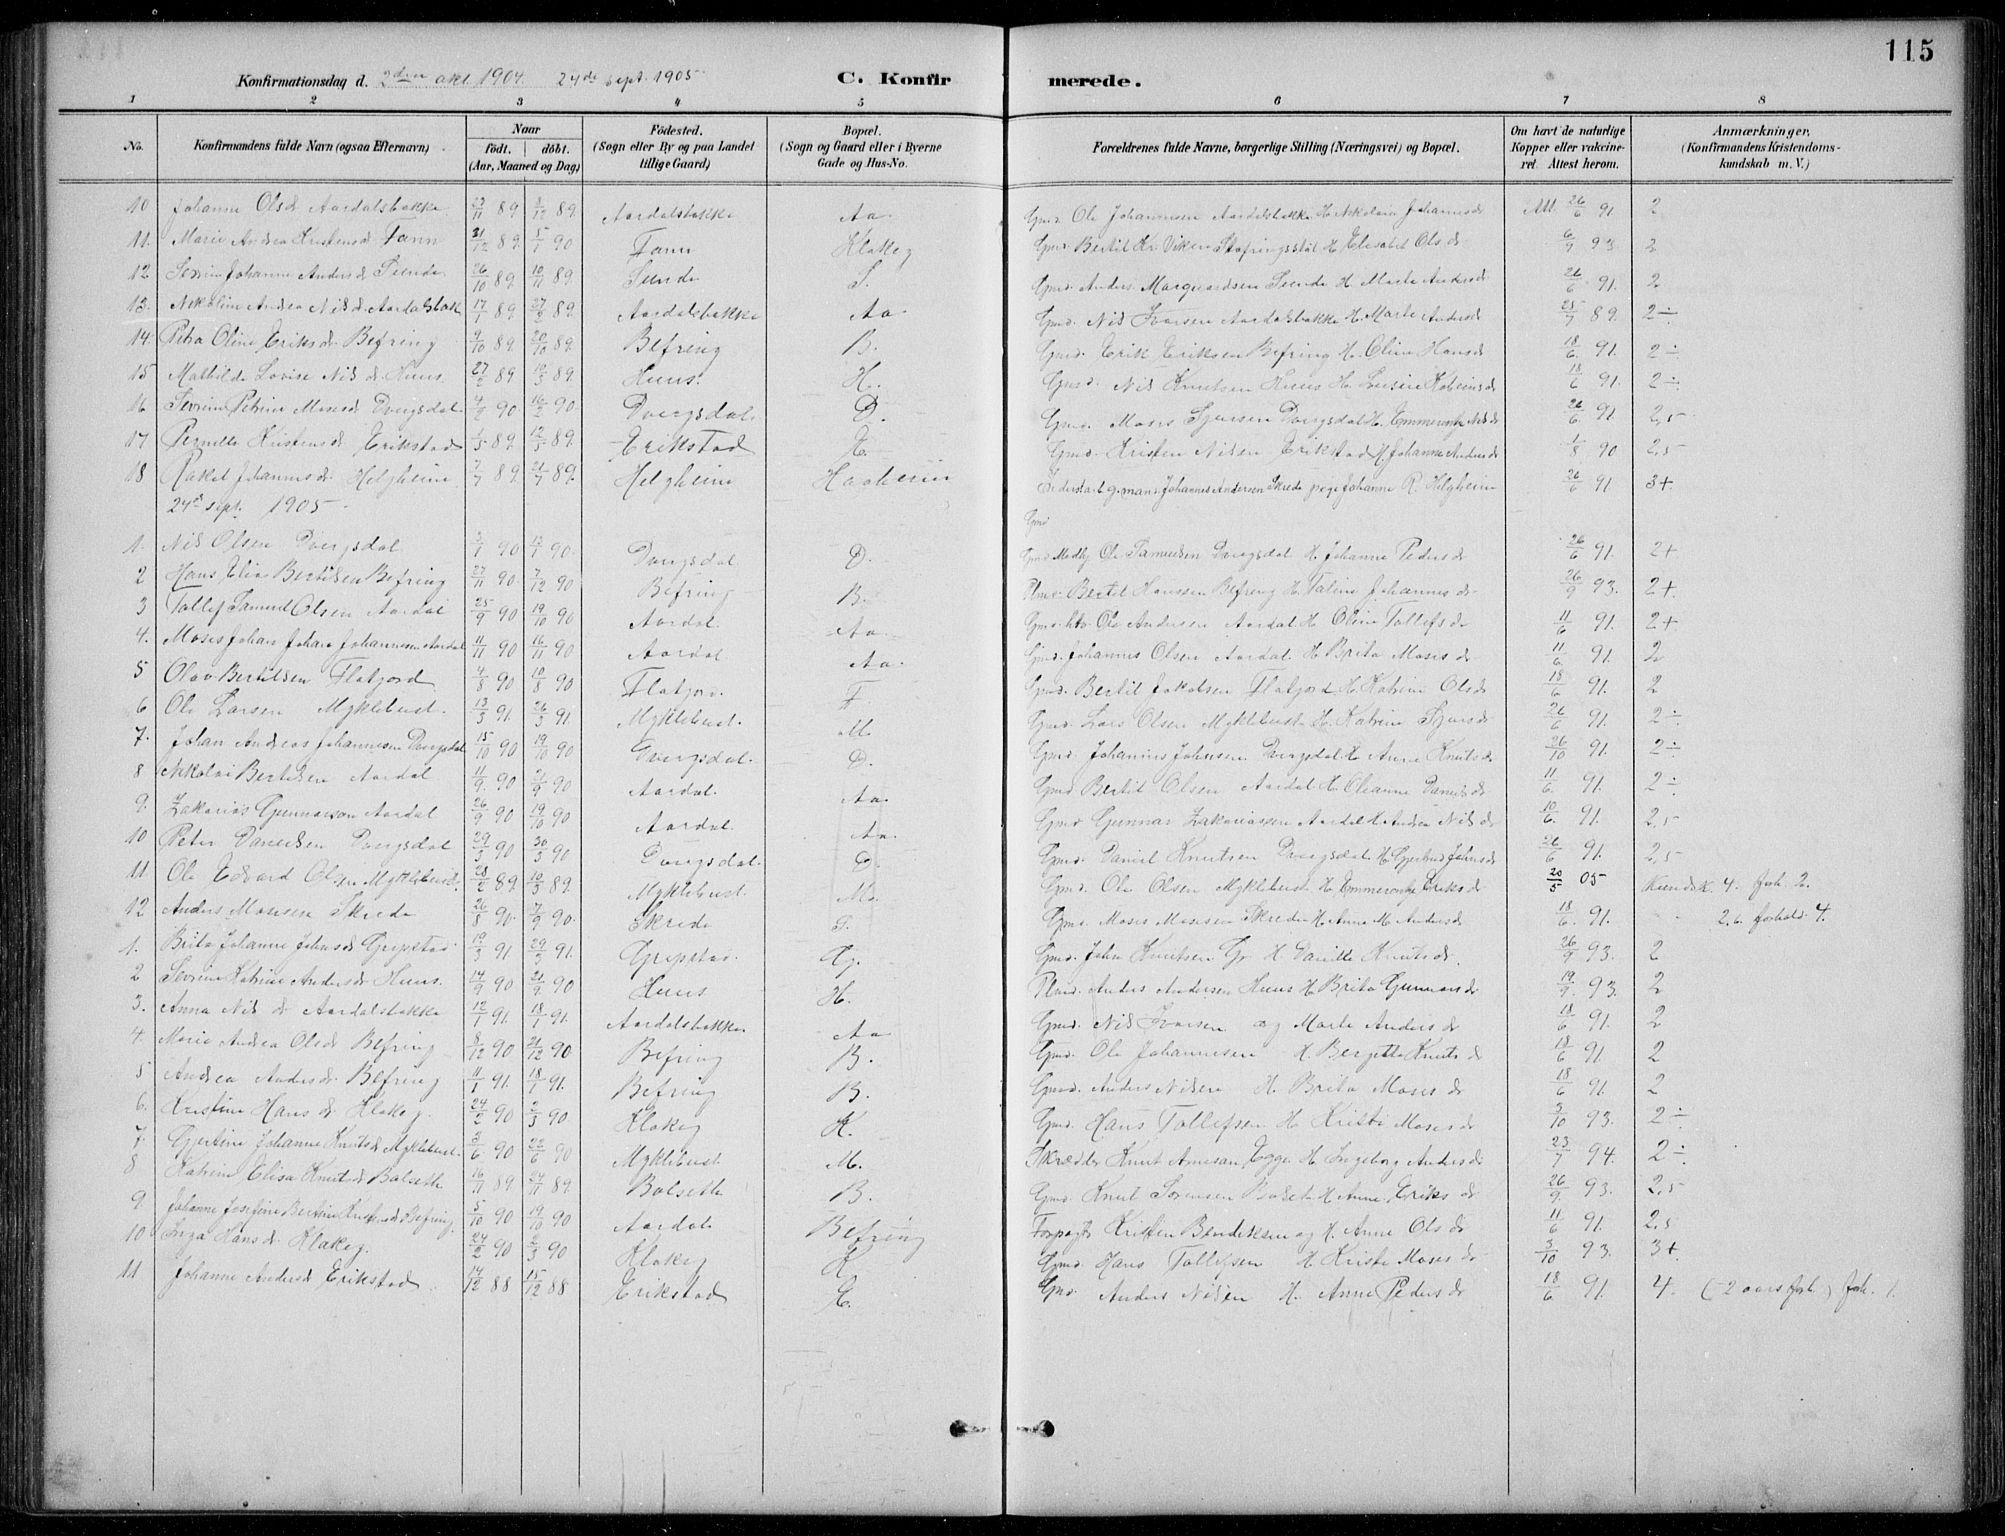 115
Konfirmationsdag d. 2den okt. 1904. 24de sept. 1905 C. Konfirmerede.
1 2 3 4 5 6 7 8
No. Konfirmandens fulde Navn (ogsaa Efternavn) Naar födt. döbt. (Aar, Maaned og Dag) Födested. (Sogn eller By og paa Landet tillige Gaard) Bopæl. (Sogn og Gaard eller i Byerne Gade og Hus-No. Forældrenes fulde Navne, borgerlige Stilling (Næringsvei) og Bopæl. Om havt de naturlige Kopper eller vakcineret. Attest herom. Anmærkninger. (Konfirmandens Kristendomskundskab m. V.)
10 Johanne Olsd Aardalsbakke 23/11 89. 8/12 89. Aardalsbakke Aa Gmd. Ole Johannesen Aardalsbakke H. Nikolaia Johannesd Att. 26/6 91 2
11. Marie Andrea Kristensd. Fann 31/12 89. 5/1 90 Fann Klakeg Gmd. Bertil Kr. Viken Støfringsstøl H. Elisabet Olsd 6/9 93 2
12 Sevrine Johanne Andersd Sunde 26/10 89. 10/11 89. Sunde S. Gmd. Anders Marquardsen Sunde H. Marte Andersd 26/6 91. 2
13. Nikoline Andrea Nilsd. Aardalsbak 17/1 89. 27/2 89. Aardalsbakke Aa. Gmd. Nils Ivarsen Aardalsbakke H. Marte Andersd 25/7 89. 2÷
14. Petra Oline Eriksd. Befring 9/10 89. 20/10 89. Befring B. Gmd. Erik Eriksen Befring H. Oline Hansd 18/6 91. 2÷
15 Mathilde Lovise Nilsd. Huus. 27/2 89 10/3 89. Huus. H. Gmd. Nils Knutsen Huus H. 18/6 91. 2÷
16 Sevrine Petrine Mosesd Dvergsdal 4/2 90. 16/2 90. Dvergsdal D. Gmd. Moses Sjursen Dvergsdal H. Emmerensje Nilsd 26/6 91 2,5
17 Pernille Kristensd. Erikstad 1/5 89. 12/5 89. Erikstad E. Gmd. Kristen Nilsen Erikstad H. Johanne Andersd 1/8 90 2,5
18 Rakel Johannesd. Helgheim 7/7 89. 21/7 89. Helgheim Haaheim Johannes Andersen Skrede pige Johanne R. Helgheim 26/6 91 3+
24de sept. 1905 Gmd
1. Nils Olsen Dvergsdal 3/1 90 12/1 90. Dvergsdal D. Gmd. Ole Samuelsen Dvergsdal H. Johanne Pedersd 26/6 91. 2+
2 Hans Elias Bertilsen Befring 27/11 90. 7/12 90 Befring B. Bertil Hanssen Befring H. Taline Johannesd 26/9 93. 2+
3 Tollef Samuel Olsen Aardal 25/9 90 19/10 90 Aardal Aa. Gmd. Ole Andersen Aardal H. Oline Tollefsd 11/6 91. 2+
4. Moses Johan Johan Johannesen Aardal 11/11 90 16/11 90 Aardal Aa. Gmd. Johannes Olsen Aardal H. Brita Mosesd 11/6 91. 2
5 Olav Bertilsen Flatjord 4/8 90 10/8 90 Flatjord. F Gmd. Bertil Jakobsen Flatjord H. Katrine Olsd 18/6 91. 2
6 Ole Larsen Myklebust. 13/3 91. 26/3 91. Myklebust. M. Gmd. Lars Olsen Myklebust H. Katrine Sjursd 26/6 91. 2÷
7. Johan Andreas Johannesen Dvergsdal 15/10 90 19/10 90 Dvergsdal. D. Gmd. Johannes Johnsen Dvergsdal H. Anne Knutsd 26/10 91. 2÷
8 Nikolai Bertilsen Aardal 11/9. 90 21/9 90 Aardal. Aa. Gmd Bertil Olsen Aardal H. Oleanne Danielsd 11/6 91. 2÷
9. Zakarias Gunnarson Aardal 26/9 90 19/10 90 Aardal. Aa. Gmd Gunnar Zakariassen Aardal H. Andrea Nilsd 10/6. 91. 2,5
10 Peter Danielsen Dvergsdal 29/3 90 30/3 90 Dvergsdal. D. Gmd. Daniel Knutsen Dvergsdal H. Gjertrud Johnsd 26/6 91. 2,5
11. Ole Edvard Olsen Myklebust. 28/2 89. 10/3 89. Myklebust. M. Gmd. Ole Olsen Myklebust H. Emmerensje Eriksd 20/5 05 Kundsk. 4. forh. 2.
12 Anders Mosesen Skrede 26/8 90. 7/9 90. Skrede S. Gmd. Moses Mosesen Skrede H. Anne M. Andersd 18/6. 91. 2,6. forhold 4.
1. Brita Johanne Johnsd Gripstad 19/3 91 29/3 91. Gripstad. G. Gmd. John Knutsen Gr H. Danielle Knutsd. 26/9 93. 2
2 Sevrine Katrine Andersd. Huus. 14/9 90 21/9 90 Huus H. Anders Andersen Huus H. Brita Gunnarsd 19/9. 93. 2
3. Anna Nilsd Aardalsbakke 12/1 91. 18/1 91. Aardalsbakke Aa Gmd. Nils Ivarsen og Marte Andersd 18/6 91. 2
4. Marie Andrea Olsd Befring 8/12 90 21/12 90. Befring B. Gmd. Ole Johannesen H. Bergitte Knutsd 18/6 91. 2
5 Andrea Andersd. Befring 11/1 91. 18/1 91. Befring B. Gmd. Anders Nilsen H. Brita Mosesd 18/6 91. 2
6. Kristine Hansd. Klakeg. 24/2 90 2/3 90 Klakeg K. Gmd. Hans Tollefsen H. Kristi Mosesd 3/10 93. 2÷
7. Gjertine Johanne Knutsd Myklebust. 3/6 90 22/6 90 Myklebust M. Skrædder Knut Arnesen Egge H. Ingeborg Andersd 23/7 94. 2÷
8 Katrine Elisa Knutsd Bolseth 16/11 89 24/11 89. Bolseth B. Gmd. Knut Sørensen Bolset H. Anne Eriksd 26/9. 93. 2,5
9 Johanne Josefine Bertine Kristensd Befring. 5/10 90 19/10 90 Aardal Befring Forpagter Kristen Bendiksen og H. Anne Olsd 11/6 91. 2,5
10 Inga Hansd. Klakeg. 24/2 90 2/3 90 Klakeg K. Gmd. Hans Tollefsen H. Kristi Mosesd 3/10 93. 3+
11 Johanne Andersd Erikstad. 14/12 88 15/12 88 Erikstad E. Gmd. Anders Nilsen H. Anne Pedersd 18/6 91. 4. (2 aars forb.) forh. 1.